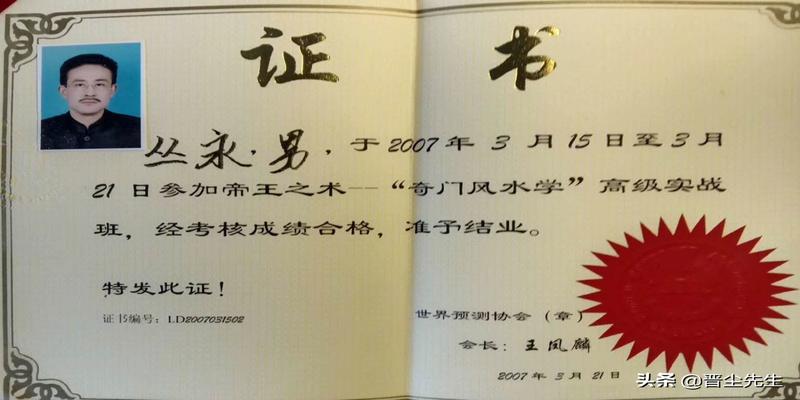 证 书
丛永,男,于2007年3月15日至3月
21日参加帝王之术--“奇门风水学”高级实战
班,经考核成绩合格,准予结业。
特发此证!
证书编号:LD2007031502
世界预测协会(章)
会长:王凤麟
2007年3月21日
头条 @晋尘先生